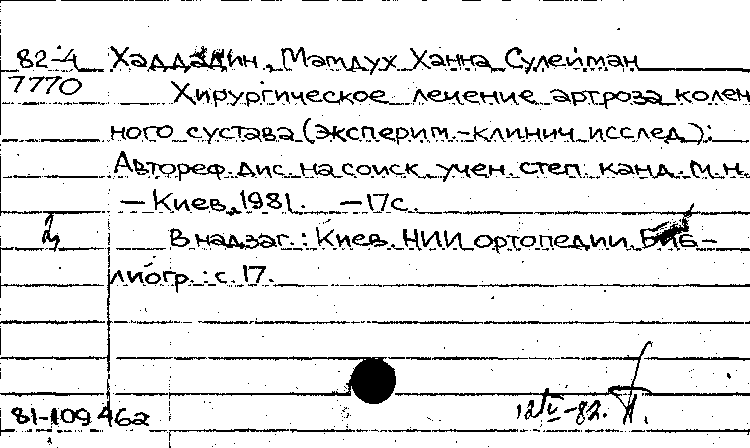 82-4 Хаддадин, Мамдух Ханна Сулейман
7770 Хирургическое лечение артроза колен
ного сустава (эксперим.-клинич. исслед.):
Автореф. дис. на соиск. учен. степ. канд. м.н.
— Киев, 1981. — 17с.
2 В надзаг.: Киев. НИИ ортопедии. Биб-
лиогр.: с. 17.
81-109462